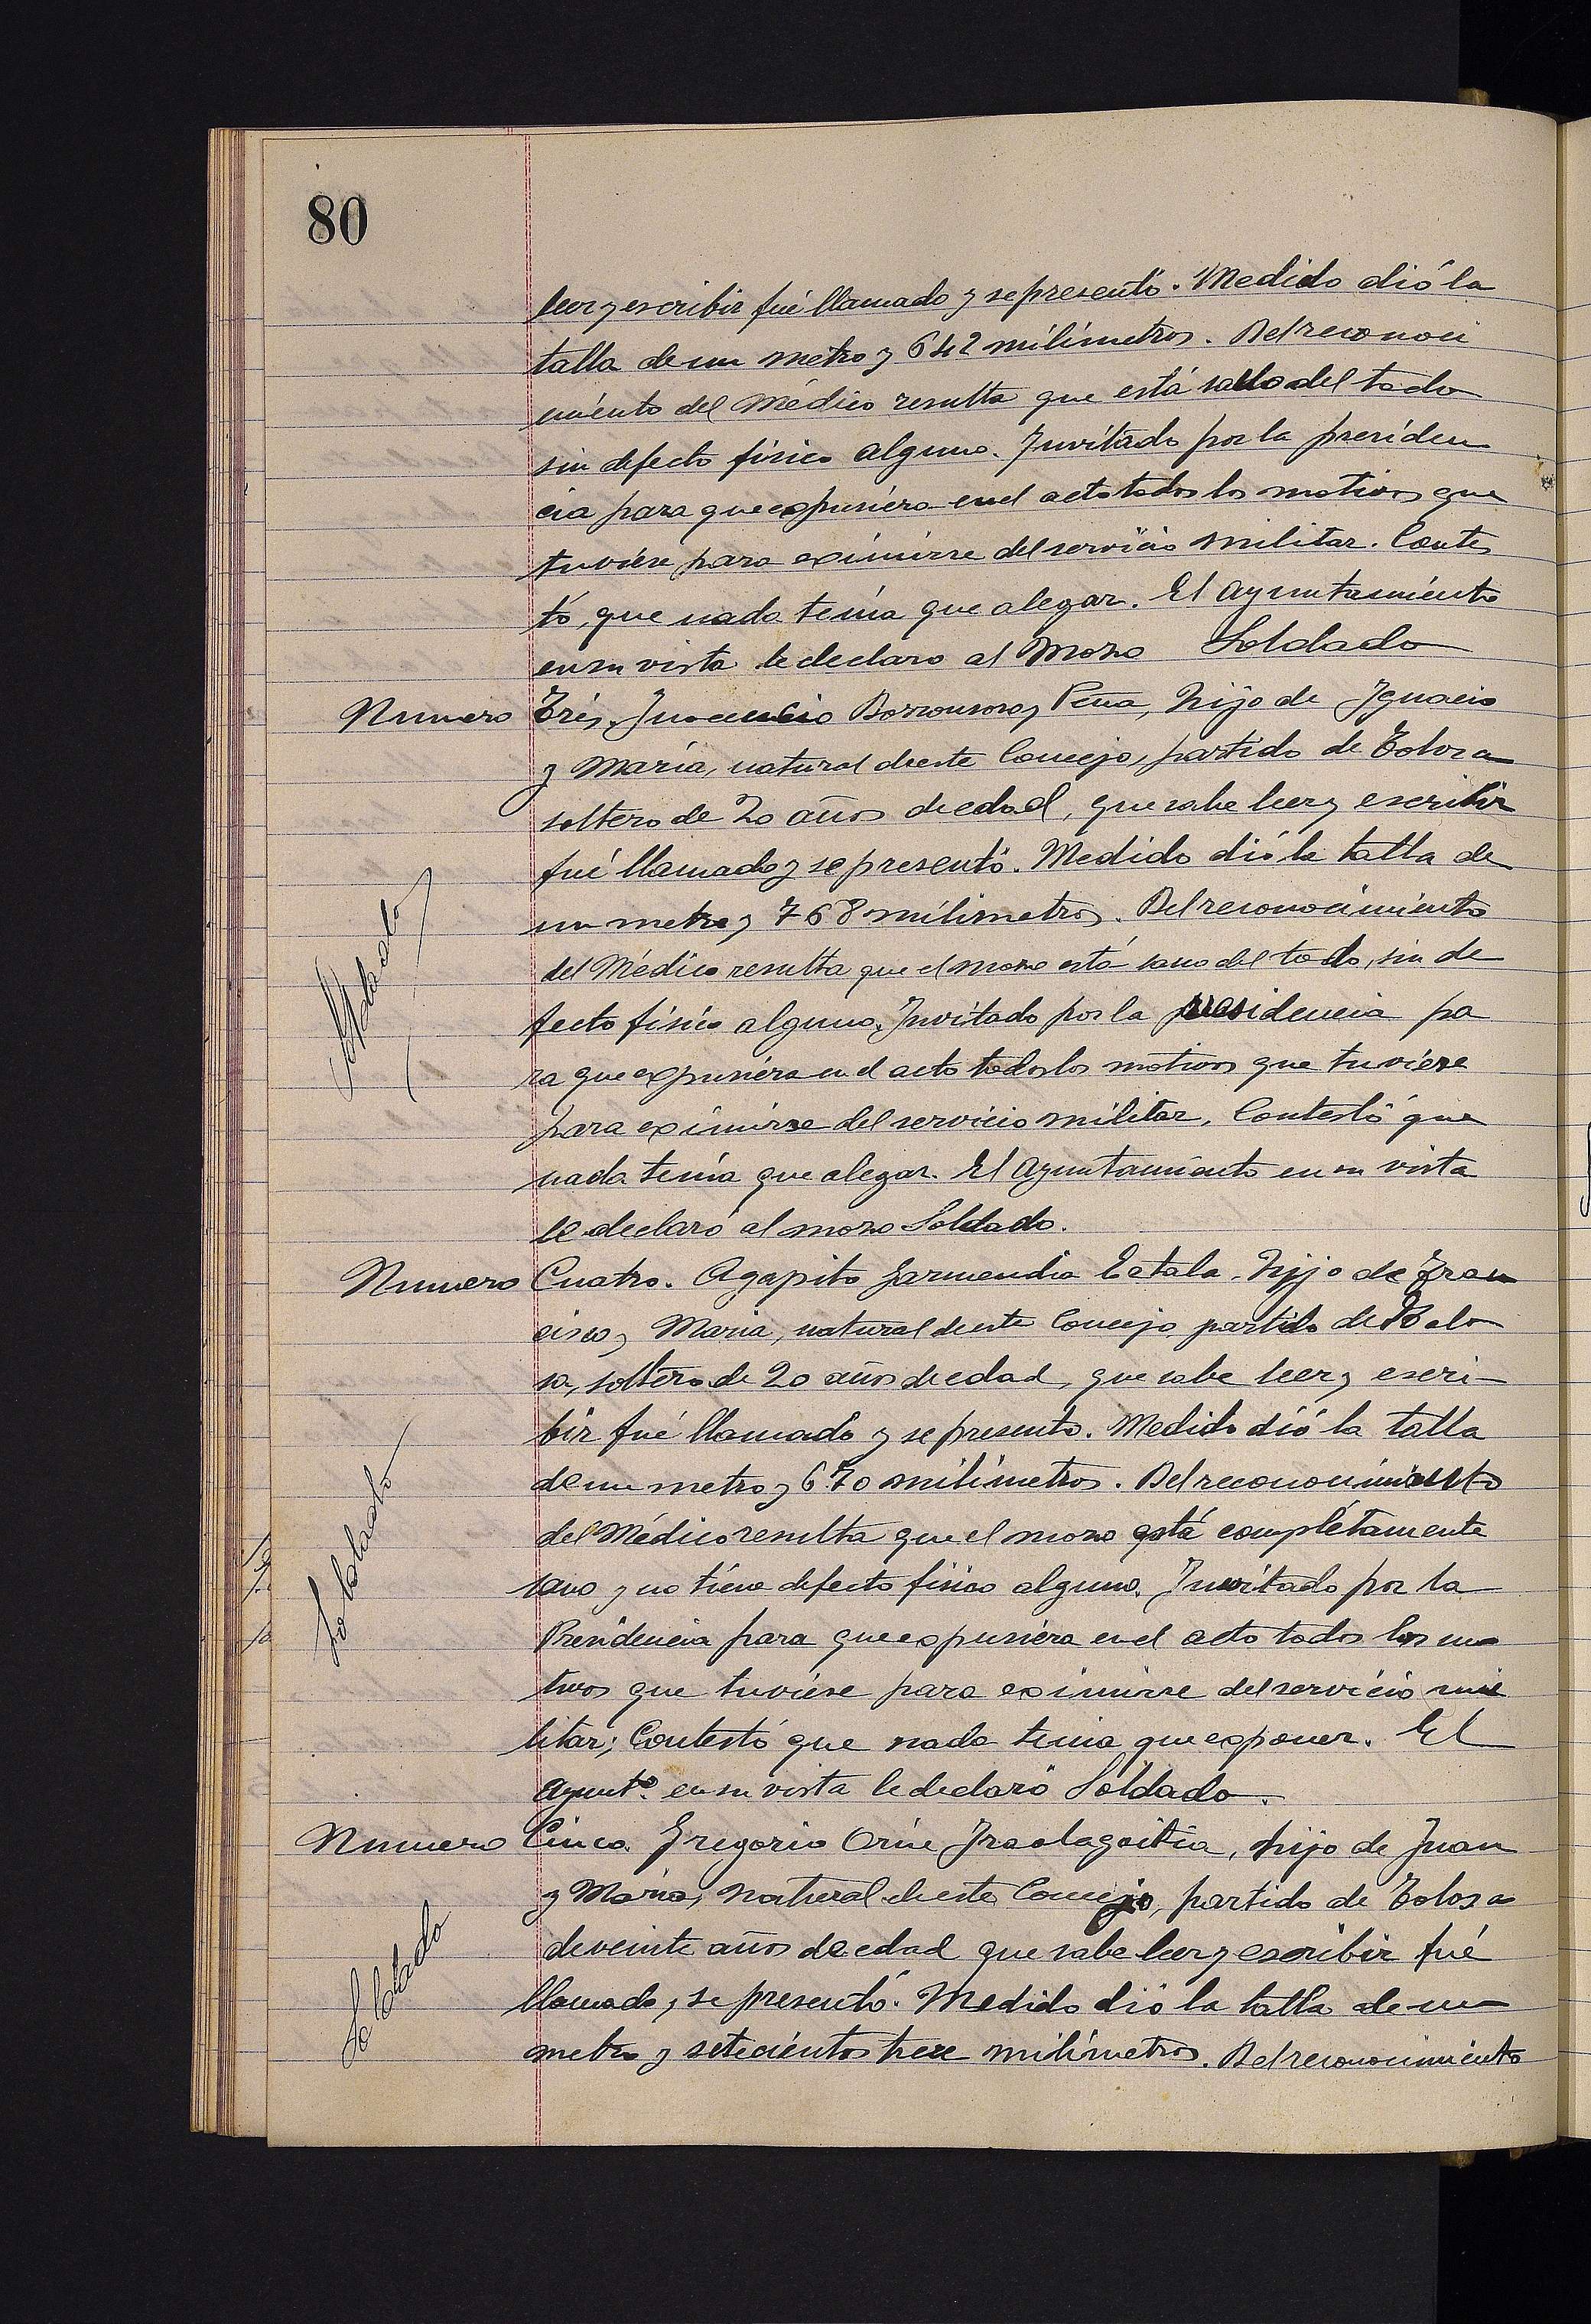 80
leer y escribir fué llamado y se presentó. Medido dió la
talla de un metro y 642 milímetros. Del reconoci
miento del Médico resulta que está sano del todo
sin defecto físico alguno. Invitado por la presiden
cia para que expusiera en el acto todos los motivos que
tuviere para eximirse del servicio militar. Contes
tó, que nada tenía que alegar. El Ayuntamiento
en su vista le declaro al Mozo Soldado
Numero Tres. Inocencio Peña, hijo de Ignacio
y María, natural de este Concejo, partido de Tolosa
soltero de 20 años de edad, que sabe leer y escribir
fué llamado y se presentó. Medido dió la talla de
un metro y 768 milimetros. Del reconocimiento
del Médico resulta que el mozo está sano del todo, sin de
fecto físico alguno. Invitado por la presidencia pa
ra que expusiera en el acto todos los motivos que tuviere
para eximirse del servicio militar, Contestó que
nada tenía que alegar. El Ayuntamiento en su vista
le declaró al mozo Soldado.
Soldado
Numero Cuatro. Agapito Garmendia Zatala. hijo de Fran
cisco y Maria, natural de este Concejo partido de Tolo
sa, soltero de 20 años de edad, que sabe leer y escri-
bir fué llamado y se presento. Medido dió la talla
de un metro y 670 milímetros. Del reconocimiento
del Médico resulta que el mozo está complétamente
sano y no tiene defecto físico alguno. Invitado por la
Presidencia para que expusiera en el acto todos los mo
tivos que tuviese para eximirse del servicio mili
litar; Contestó que nada tenia que exponer. El
Ayuntº. en su vista le declaró Soldado.
Soldado
Numero Cinco. Gregorio Iraolagoitia, hijo de Juan
y Maria, natural de este Concejo, partido de Tolosa
de veinte años de edad que sabe leer y escribir fué
llamado y se presentó. Medido dió la talla de un
metro y setecientos trece milímetros. Del reconocimiento
Soldado